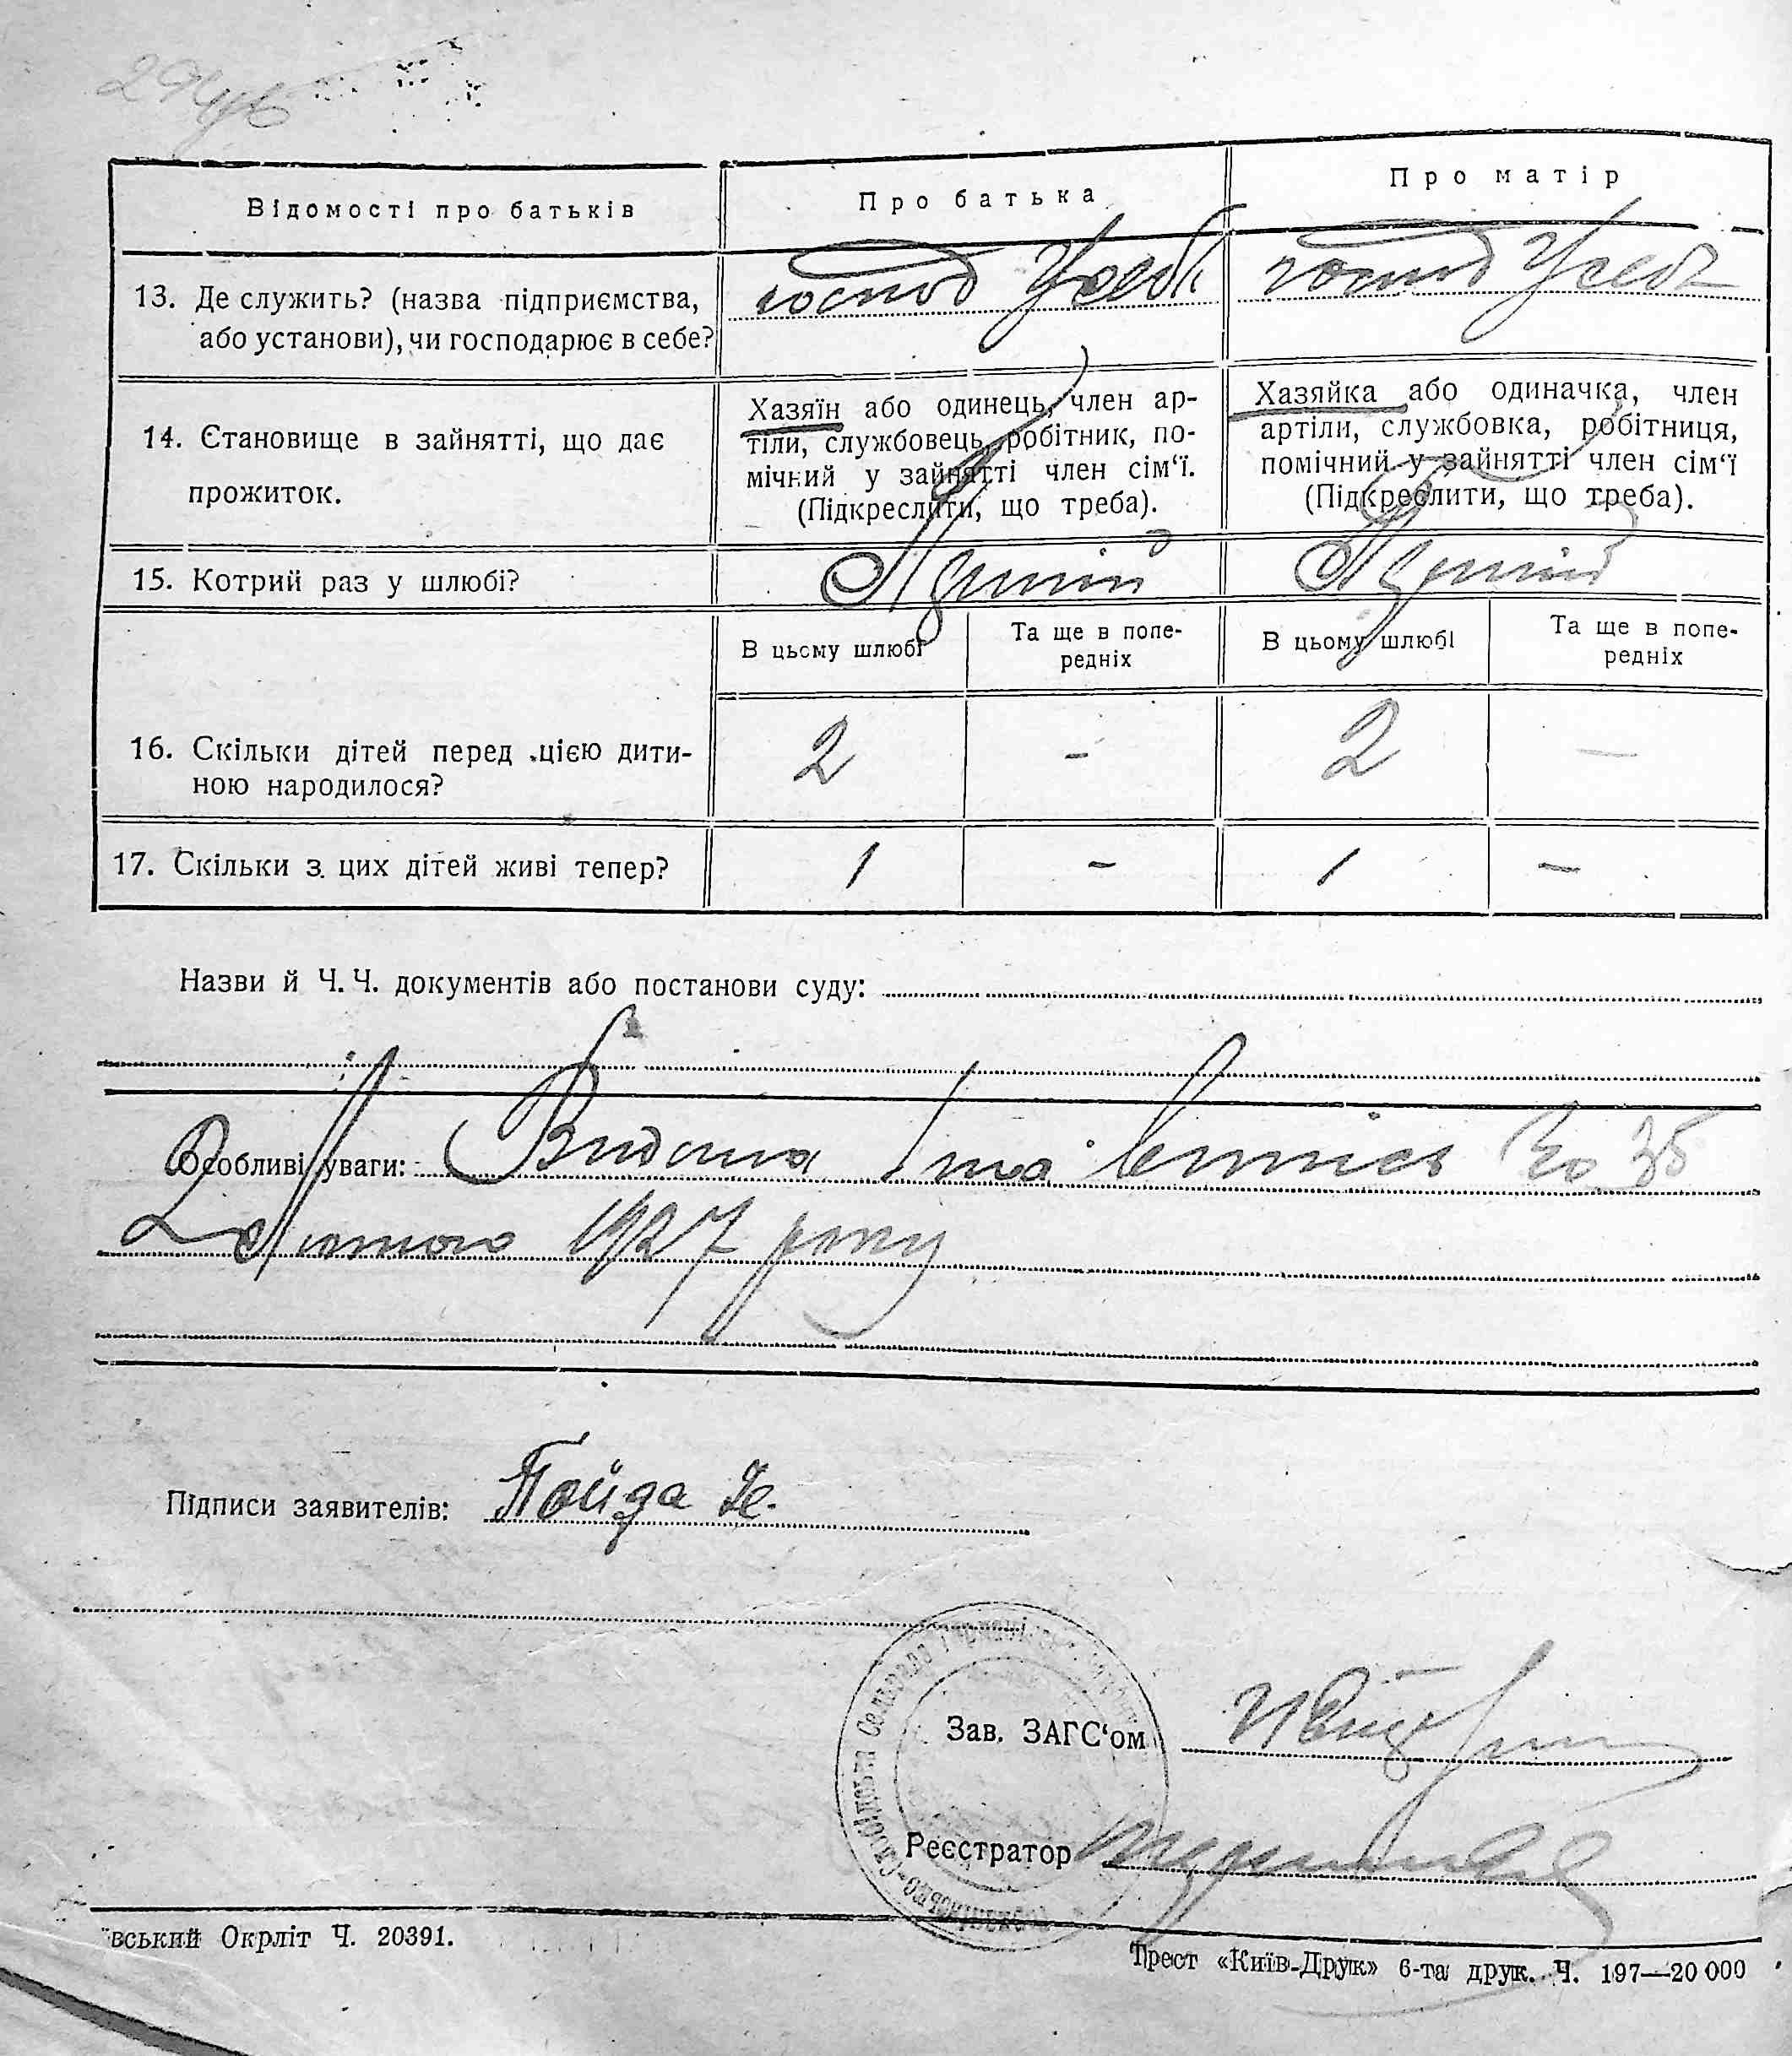 Відомості про батьків
Про батька
Про матір
13. Де служить? (назва підприємства,
або установи), чи господарює в себе?
господ Усебе
господ Усебе
14. Становище в зайнятті, що дає
прожиток.
Хазяїн або одинець, член ар-
тіли, службовець, робітник, по-
мічний у зайнятті член сім‘ї.
(Підкреслити, що треба).
Хазяйка або одиначка, член
артіли, службовка, робітниця,
помічний у зайнятті член сім‘ї
(Підкреслити, що треба).
15. Котрий раз у шлюбі?
Перший
Перший
В цьому шлюбі
Та ще в попе-
редніх
В цьому шлюбі
Та ще в попе-
редніх
16. Скільки дітей перед цією дити-
ною народилося?
2 - 2 —
17. Скільки з цих дітей живі тепер?
1 - 1 —
Назви й Ч. Ч. документів або постанови суду:
Особливі уваги: Видана витись 35
Лютого 1927 року
Підписи заявителів: Пойда
Зав. ЗАГС‘ом
Реєстратор
вський Окрліт Ч. 20391.
Трест «Київ-Друк» 6-та друк. Ч. 197—20 000